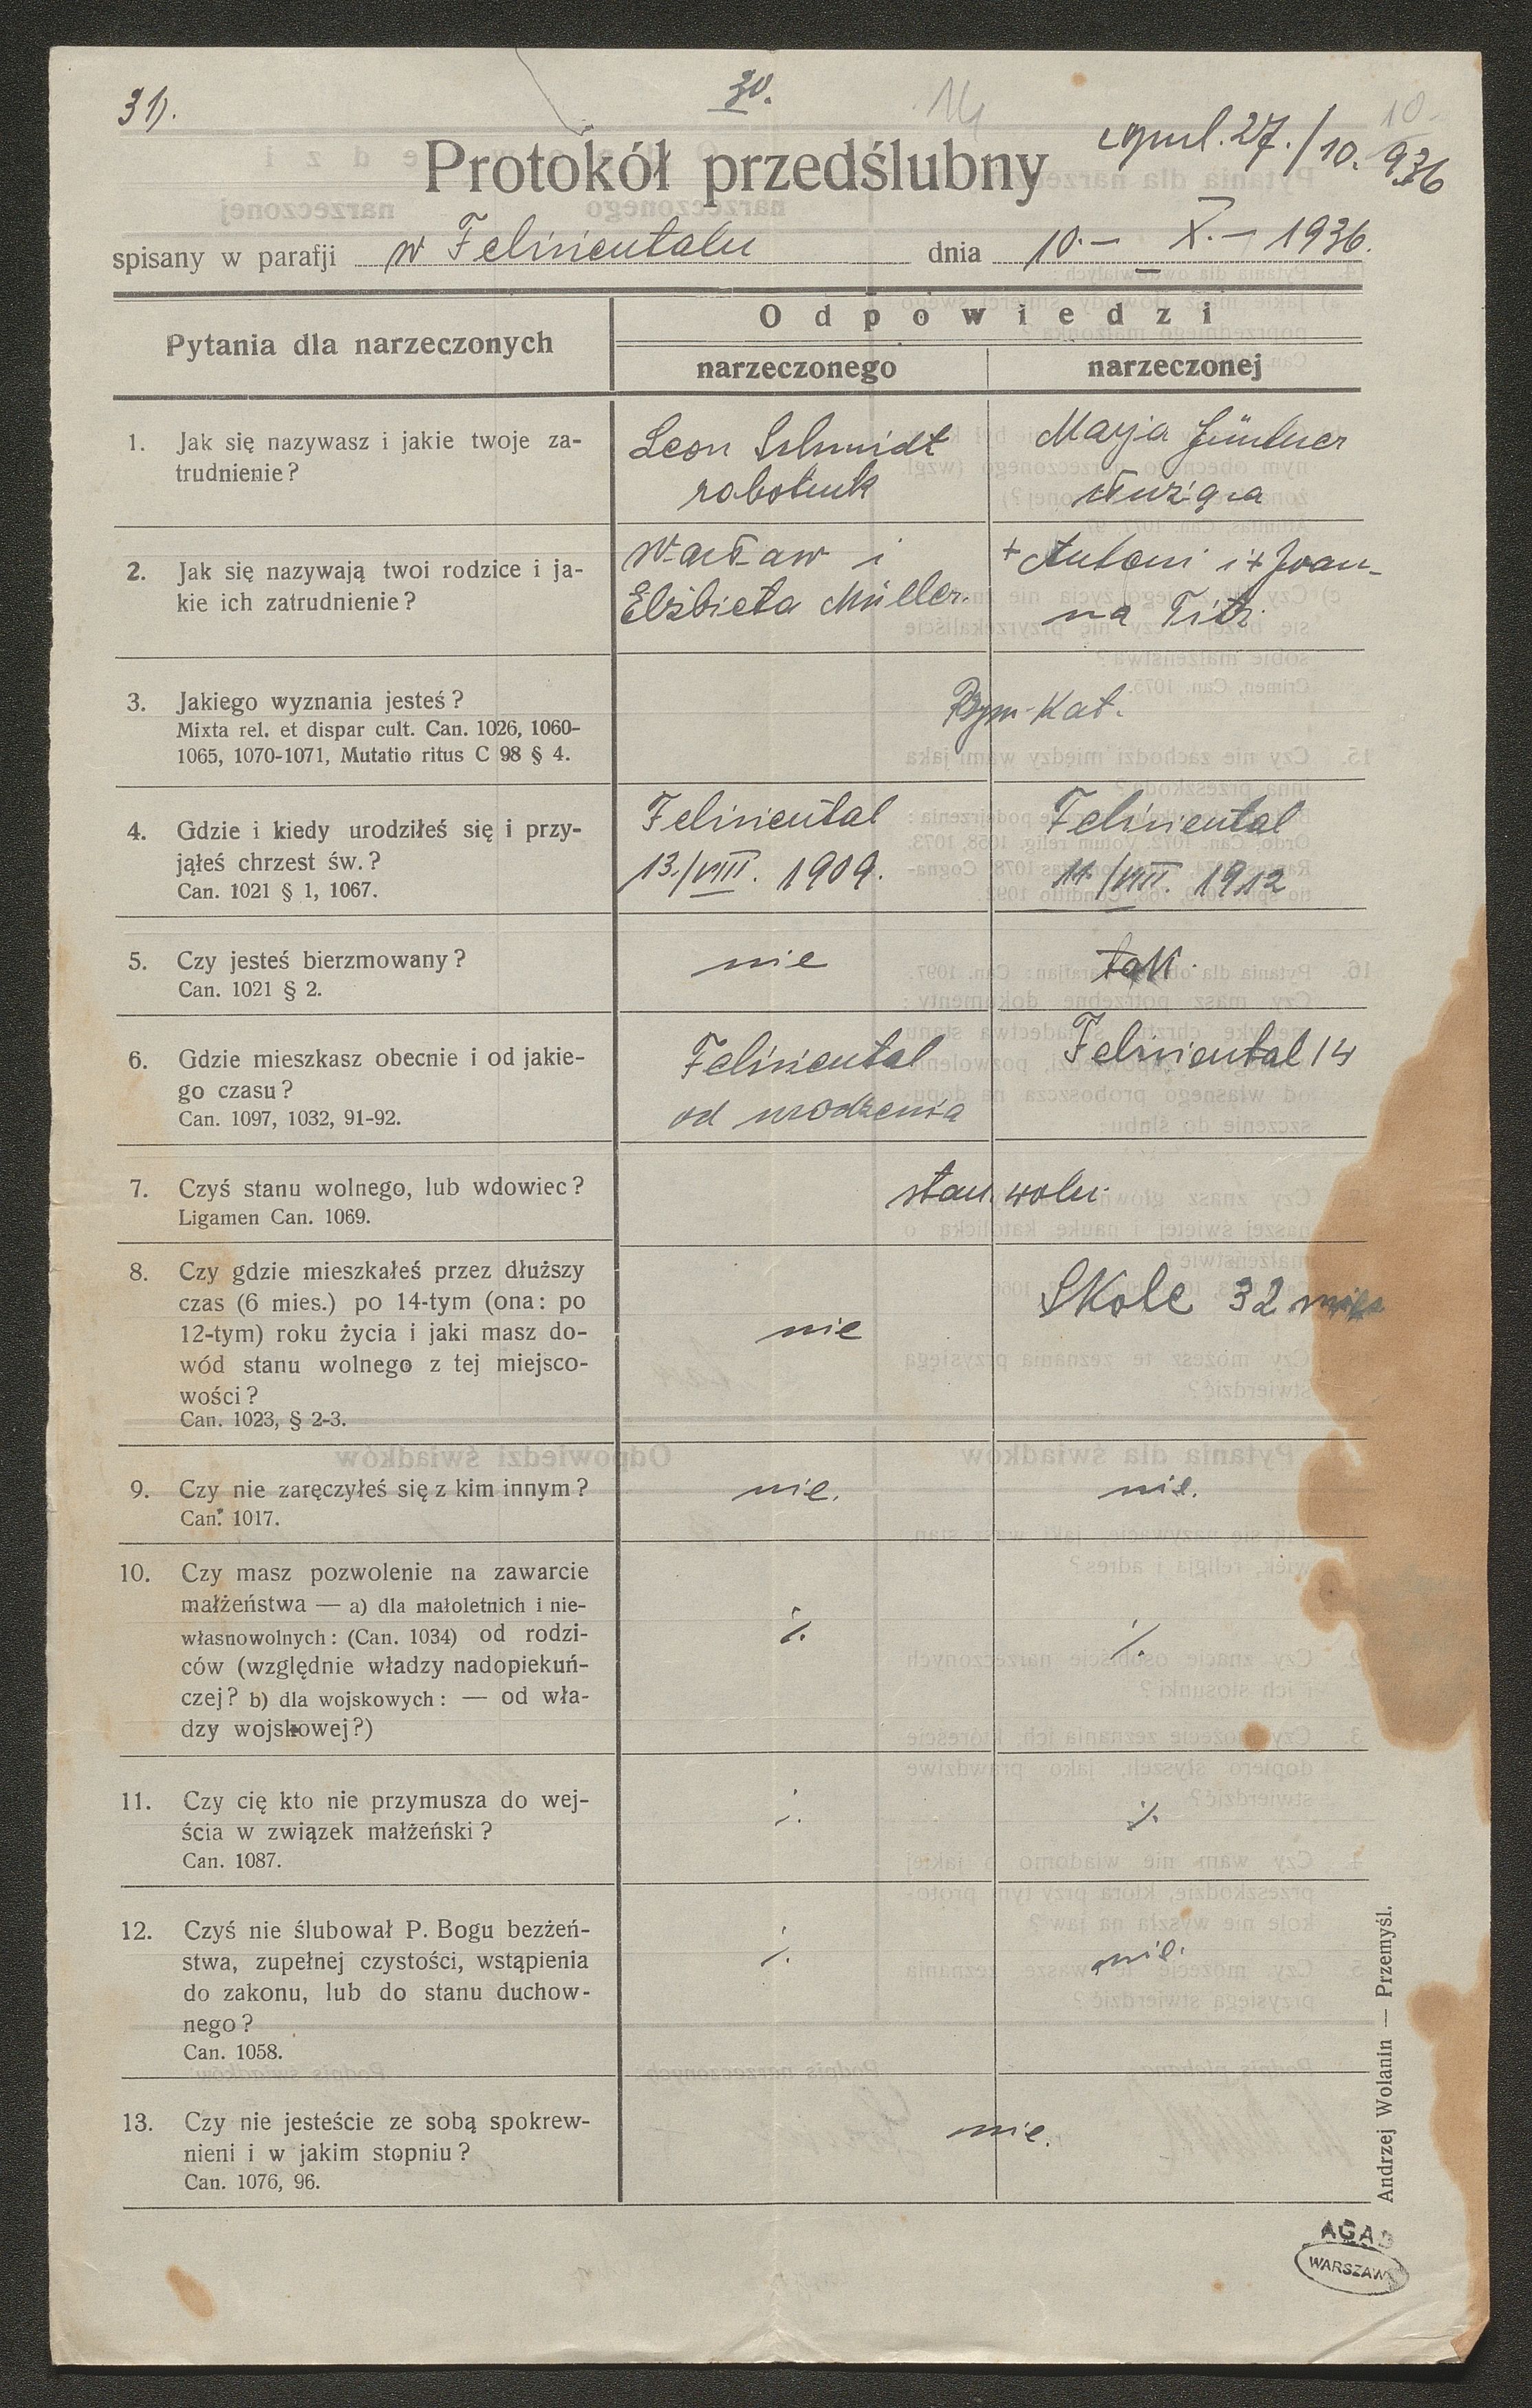 31).
30.
14
10.
27./10. 936
Protokół przedślubny
spisany w parafji w Felizientalu dnia 10.– X.– 1936.
Pytania dla narzeczonych
Odpowiedzi
narzeczonego
narzeczonej
1. Jak się nazywasz i jakie twoje za-
trudnienie?
Leon Schmidt
robotnik
Marja Güntner
służąca
2. Jak się nazywają twoi rodzice i ja-
kie ich zatrudnienie?
Wacław i
Elżbieta Müller.
+ Antoni i + Joan-
na Titz.
3. Jakiego wyznania jesteś?
Mixta rel. et dispar cult. Can. 1026, 1060-
1065, 1070-1071, Mutatio ritus C 98 § 4.
Rzym-kat.
4. Gdzie i kiedy urodziłeś się i przy-
jąłeś chrzest św.?
Can. 1021 § 1, 1067.
Feliziental
13./VIII. 1909.
Feliziental
11./VIII. 1912
5. Czy jesteś bierzmowany?
Can. 1021 § 2.
nie
tak.
6. Gdzie mieszkasz obecnie i od jakie-
go czasu?
Can. 1097, 1032, 91-92.
Feliziental
od urodzenia
Feliziental 14
7. Czyś stanu wolnego, lub wdowiec?
Ligamen Can. 1069.
stan woln.
8. Czy gdzie mieszkałeś przez dłuższy
czas (6 mies.) po 14-tym (ona: po
12-tym) roku życia i jaki masz do-
wód stanu wolnego z tej miejsco-
wości?
Can. 1023, § 2-3.
nie
Skole 32
9. Czy nie zaręczyłeś się z kim innym?
Can. 1017.
nie.
nie.
10. Czy masz pozwolenie na zawarcie
małżeństwa — a) dla małoletnich i nie-
własnowolnych: (Can. 1034) od rodzi-
ców (względnie władzy nadopiekuń-
czej? b) dla wojskowych: — od wła-
dzy wojskowej?)
·/.
·/.
11. Czy cię kto nie przymusza do wej-
ścia w związek małżeński?
Can. 1087.
·/.
·/.
12. Czyś nie ślubował P. Bogu bezżeń-
stwa, zupełnej czystości, wstąpienia
do zakonu, lub do stanu duchow-
nego?
Can. 1058.
·/.
nie.
13. Czy nie jesteście ze sobą spokrew-
nieni i w jakim stopniu?
Can. 1076, 96.
nie.
Andrzej Wolanin — Przemyśl.
AGAD
WARSZAWA